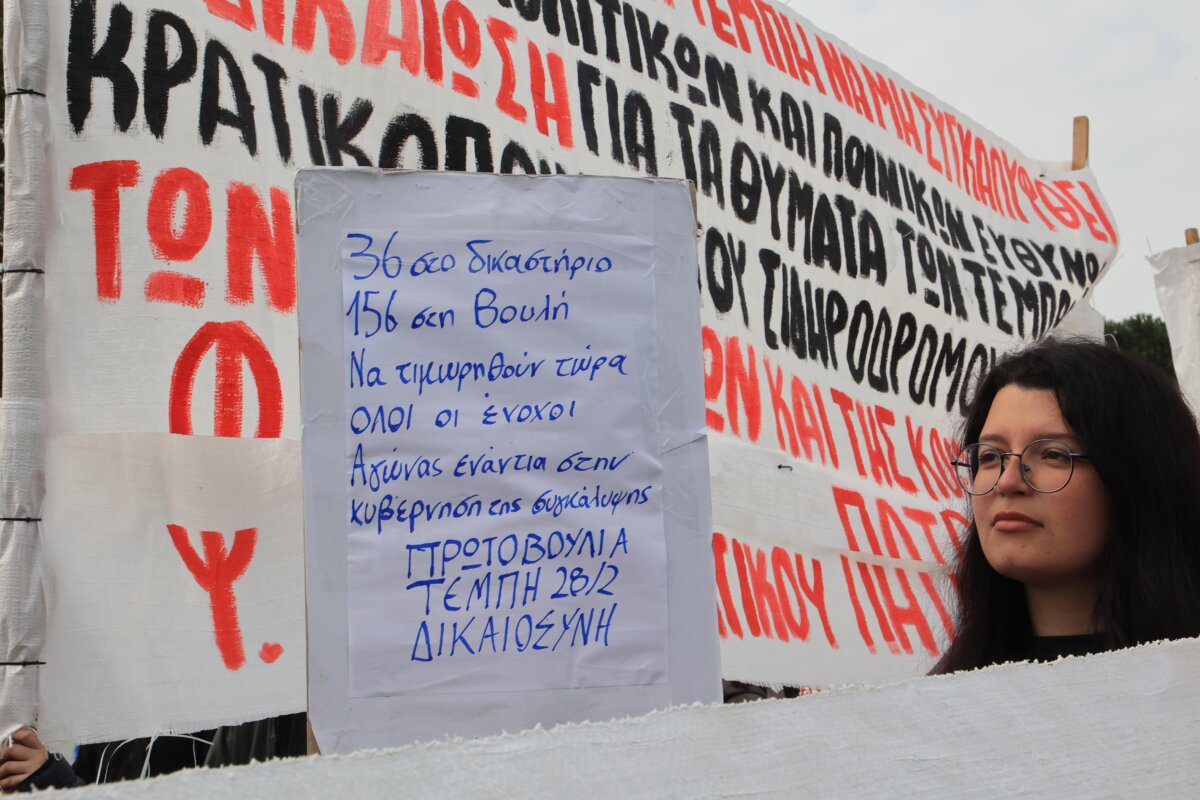 ΤΕΜΠΗ ΝΑ ΜΗ ΣΥΓΚΑΛΥΦΘΕΙ
ΠΟΛΙΤΙΚΩΝ ΚΑΙ ΠΟΙΝΙΚΩΝ ΕΥΘΥΝΩΝ
ΔΙΚΑΙΩΣΗ ΓΙΑ ΤΑ ΘΥΜΑΤΑ ΤΩΝ ΤΕΜΠΩΝ
ΚΡΑΤΙΚΟΠΟΙ ΟΥ ΣΙΔΗΡΟΔΡΟΜΟΥ
ΤΩΝ ΩΝ ΚΑΙ ΤΗΣ
Φ
Υ.
36 στο δικαστήριο
156 στη Βουλή
Να τιμωρηθούν τώρα
ΟΛΟΙ οι ένοχοι
Αγώνας ενάντια στην
κυβέρνηση της συγκάλυψης
ΠΡΩΤΟΒΟΥΛΙΑ
ΤΕΜΠΗ 28/2
ΔΙΚΑΙΟΣΥΝΗ